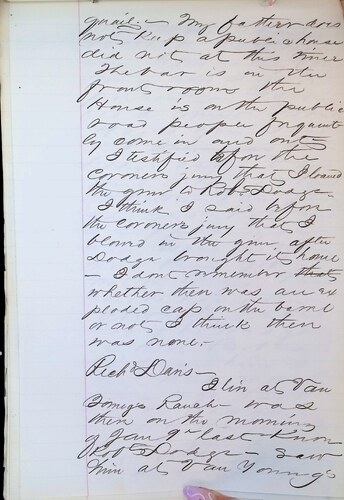 quail. - My father does
not keep a public house
did not at this time
The bar is in the
front room the
House is on the public
road people frequent
ly come in and out
I testified before the
Coroners jury that I loaned
the gun to Bob Dodge -
I think I said before
the coroners jury that I
blowed in the gun after
Dodge brought it home
- I dont remember that
whether there was an ex
ploded cap on the barrel
or not I think there
was none. -
Richd Davis -
I live at Van
Youngs Ranch was
there on the morning
of Jany last Know
Rob Dodge - Saw
him at Van Young's